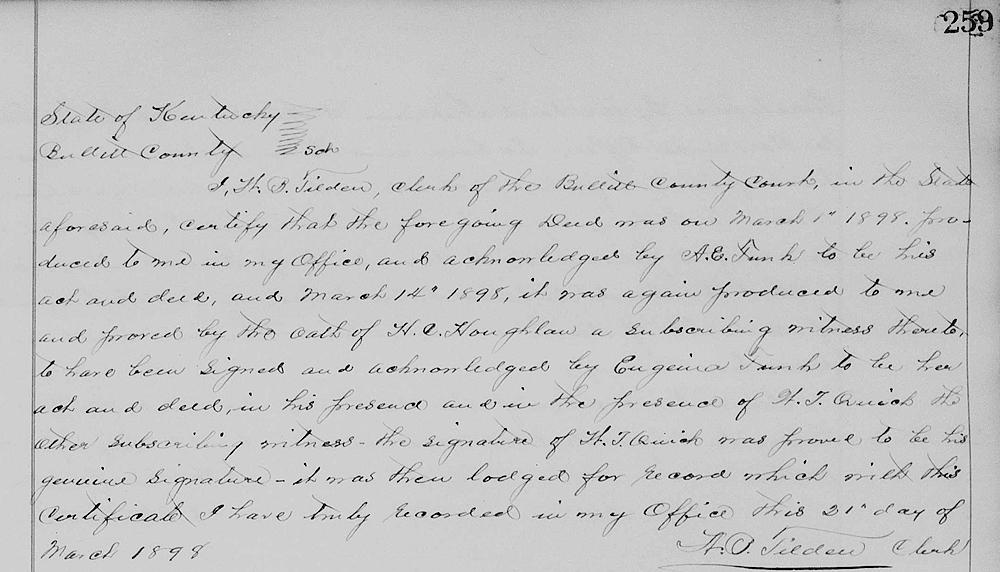 259
State of Kentucky
Bullitt County } Sct
I, W. P. Tilden, Clerk of the Bullitt County Court, in the State
aforesaid, certify that the foregoing Deed was on March 1" 1898. pro-
duced to me in my Office, and acknowledged by A. E. Funk to be his
act and deed, and March 14" 1898, it was again produced to me
and proved by the oath of H. C. Houghlan a subscribing witness thereto,
to have been signed and acknowledged by Eugenia Funk to be her
act and deed, in his presence and in the presence of W. T. Quick the
other subscribing witness - the signature of W. T. Quick was proved to be his
genuine signature - it was then lodged for record which with this
Certificate I have truly recorded in my Office this 21" day of
March 1898
W. P. Tilden Clerk